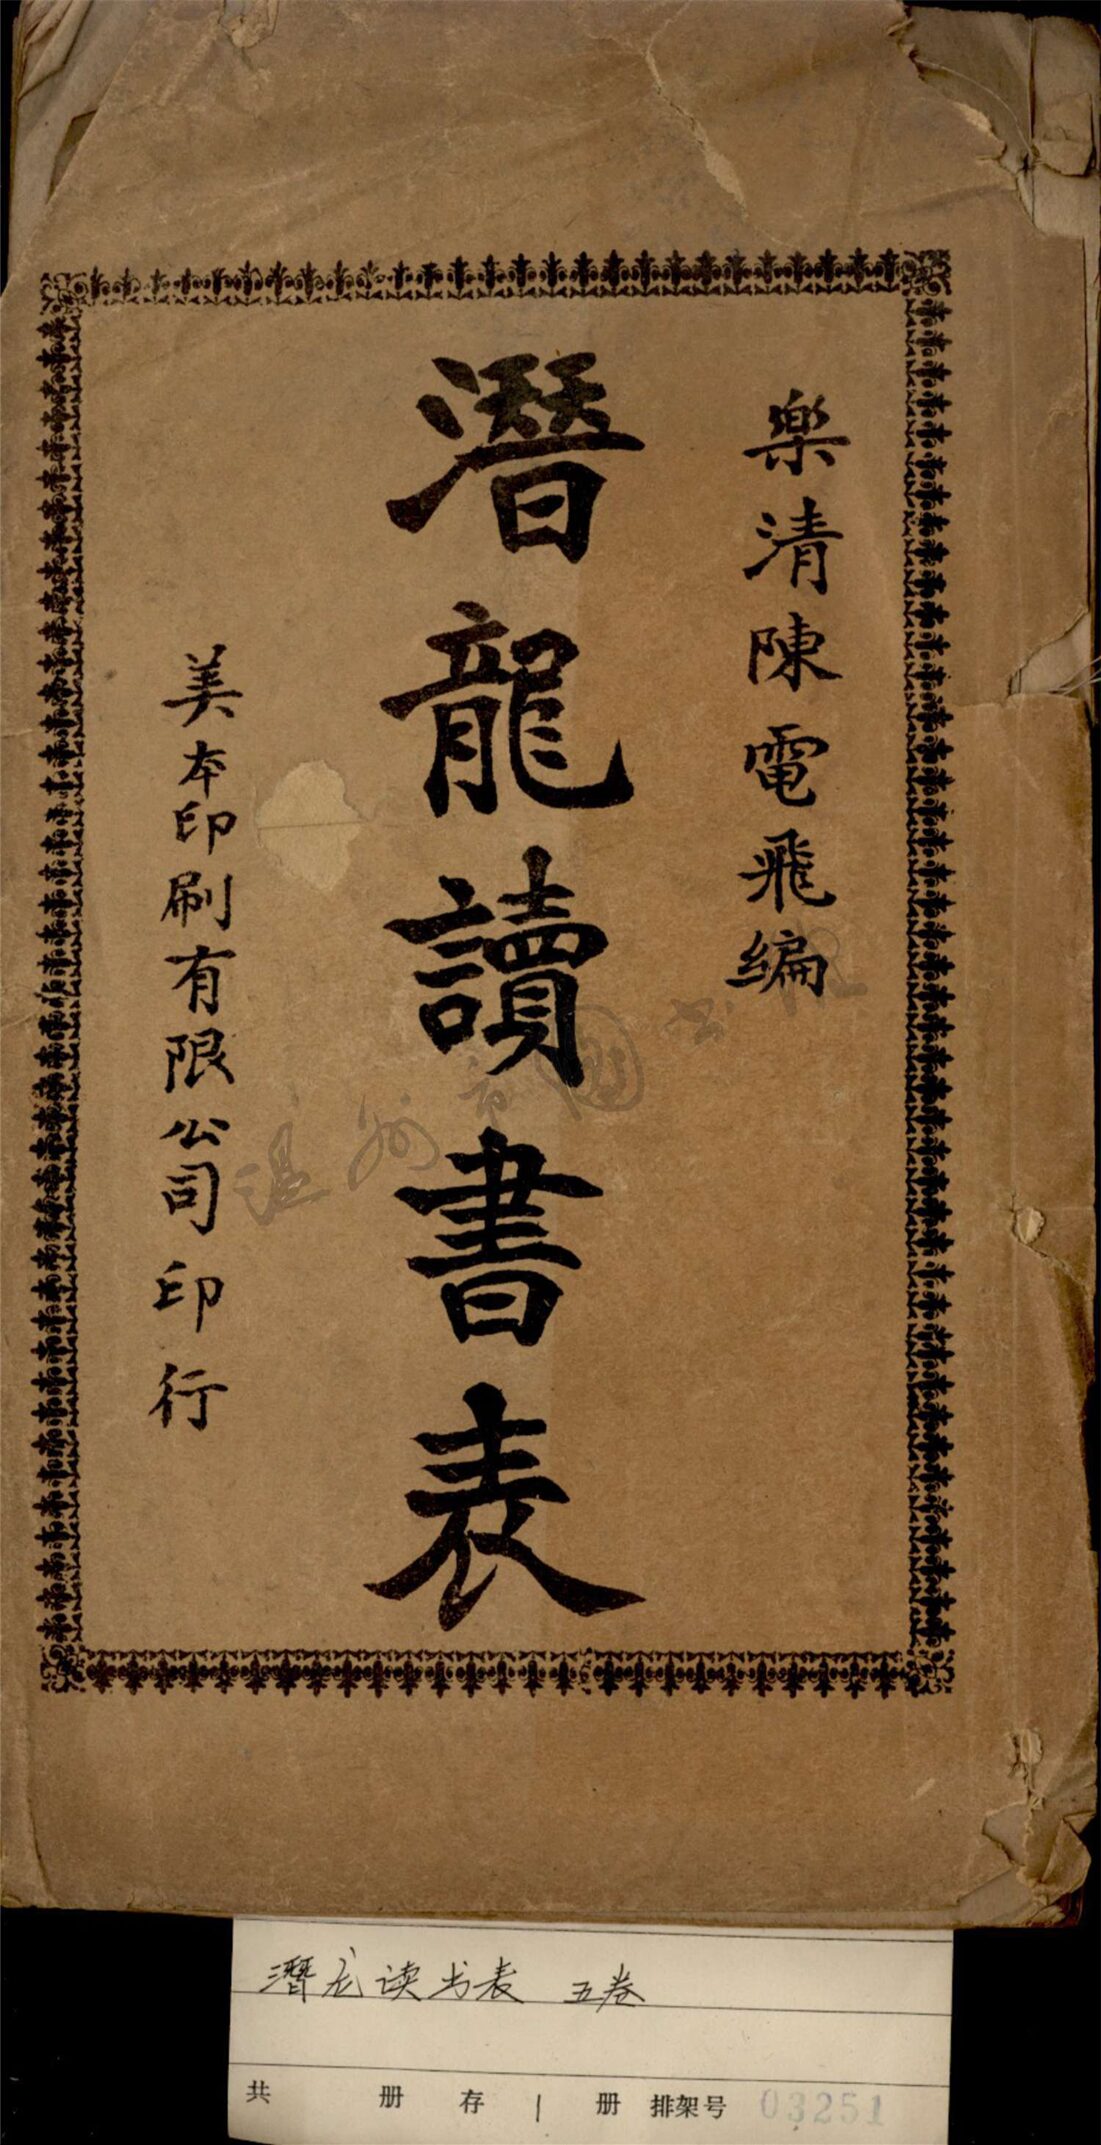 樂清陳電飛編
潛龍讀書表
美本印刷有限公司印行
温州市图书馆
潛龙读书表 五卷
共 册 存 1 册 排架号 03251